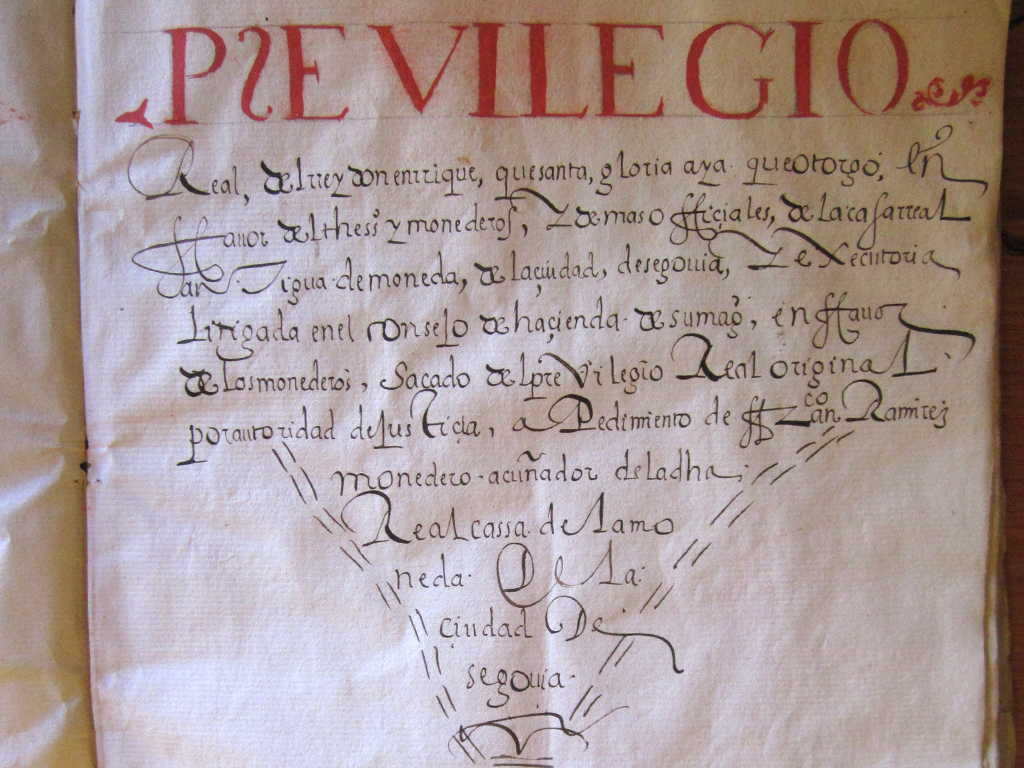 PREVILEGIO
Real, del rrey don enrrique, que santa, gloria aya. que otorgo, En
ffavor del thesso y monederos, y demas officiales, de la casa rreal
antigua de moneda, de la çiudad, de segouia, y eXecutoria
Litigada en el consejo de haçienda de su mago, en ffavor
de los monederos, Sacado del preVilegio Real original
por autoridad de jusTiçia, a Pedimiento de ffzco an Ramirez
monedero acuñador de la dha
Real cassa de la mo
neda De La
ciudad De
segouia